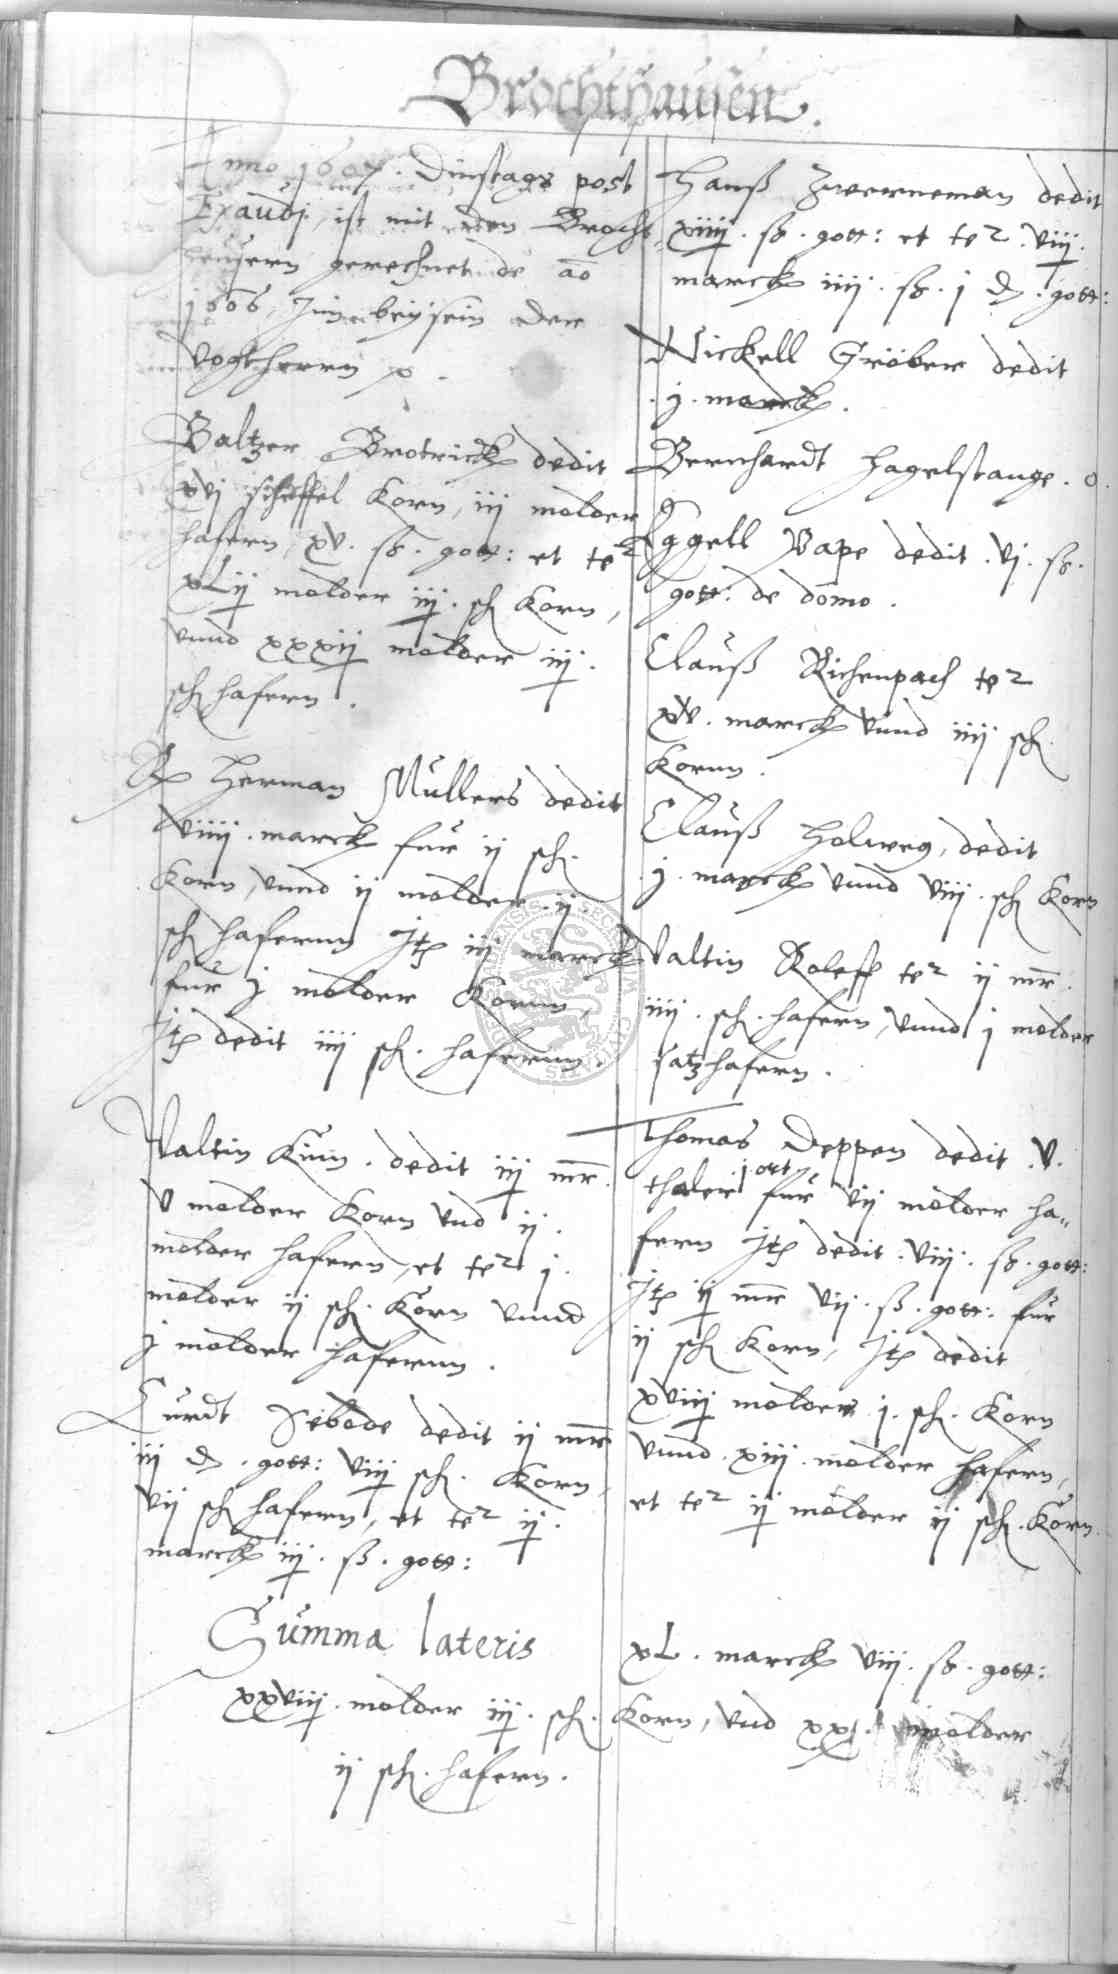 Brochthausen.
Anno 1607. Dinstags post
Exaudi, ist mit den Brocht-
heusern gerechnet de ao
1606, Im beysein der
Vogtherrn p.
Baltzer Brotrück dedit
xvj scheffel Korn, iij molder
hafern, xv. ß. gott: et tet
xLij molder iij. sch Korn,
vnnd xxxij molder iij.
sch hafern.
Rp Herman Mullers dedit
viiij. marck für ij sch.
Korn, vnnd ij molder. ij.
sch hafernn Itp iij marck
für j molder Kornn,
Itp dedit iiij sch. hafernn.
Valtin Kün. dedit iij mr.
v molder Korn vnd ij.
molder hafern, et tet j.
molder ij sch. Korn vnnd
j molder hafernn.
Curdt Sebode dedit ij mr
iij d. gott: viij sch. Korn,
vij sch hafern, et tet ij.
marck iij. ß. gott:
Hanß Zwerneman dedit
xiiij. ß. gott: et tet. viij.
marck iiij. ß. j d. gott:
Nickell Gröber dedit
j. marck.
Bernhardt Hagelstange. 0.
Eggell Pape dedit. vj. ß.
gott: de domo.
Clauß Richenpach tet
xv. marck vnnd iiij sch.
Kornn.
Clauß Holweg, dedit
j. marck vnnd viij. sch Korn
Valtin Roleff tet ij mr.
iiij. sch. hafern, vnnd j molder
satzhafern.
Thomas Deppen dedit. v.
thaler j ort für vij molder ha-
fern Itp dedit. viij. ß. gott:
Itp ij mr vij. ß. gott: für
ij sch Korn, Itp dedit
xviij molder j. sch. Korn
vnnd. xiij. molder hafern,
et tet ij molder ij sch. Korn.
Summa lateris
xL. marck viij. ß. gott:
xxviij. molder iij. sch. Korn, vnd xxj. molder
ij sch. hafern.